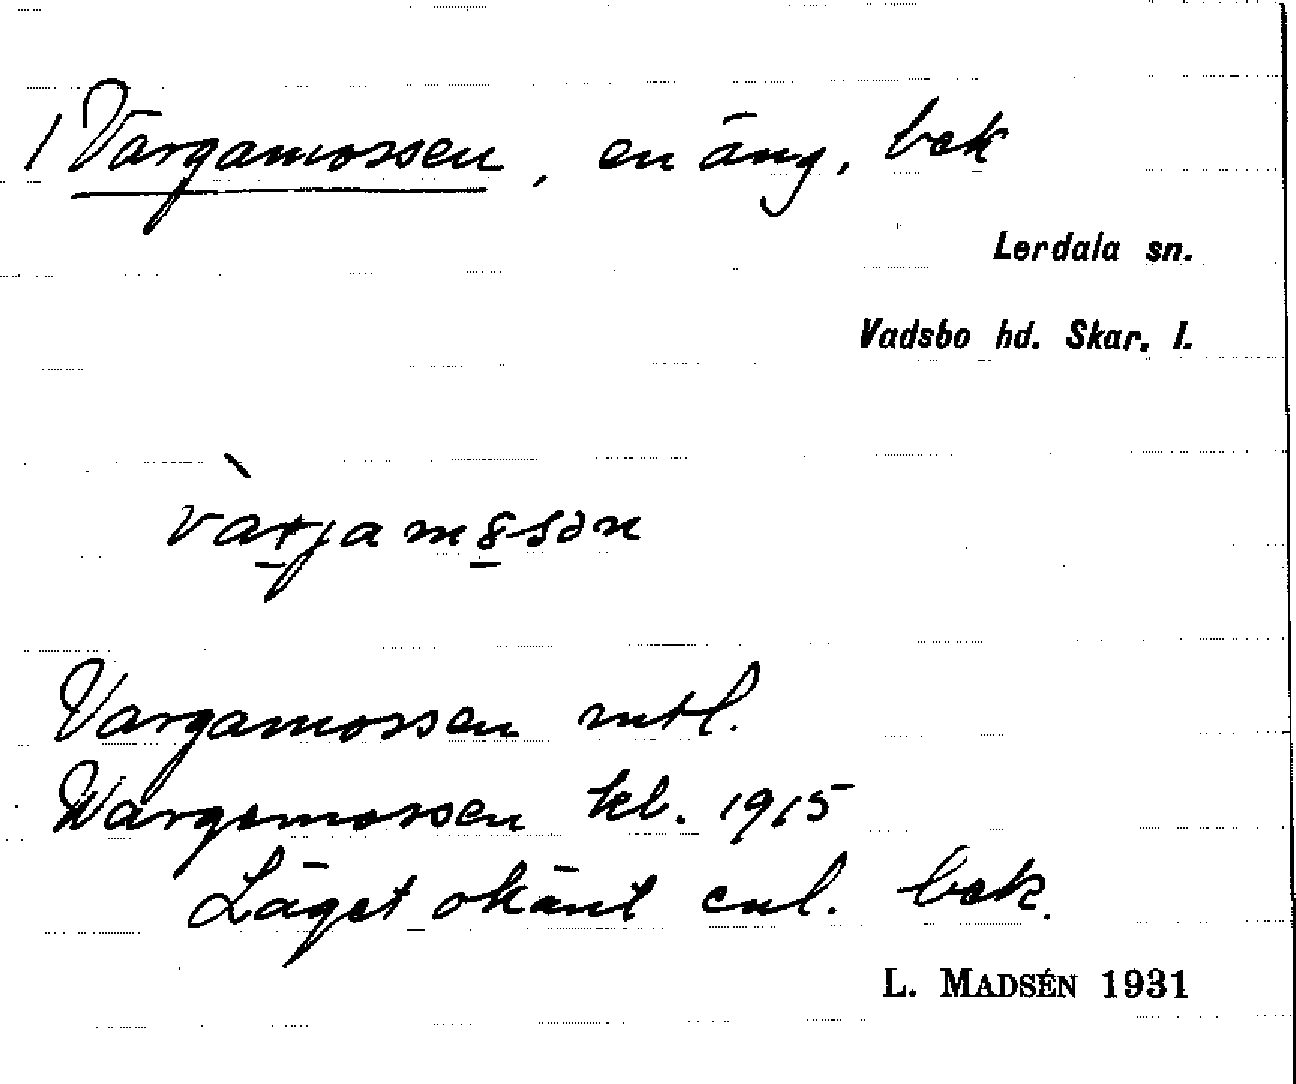 1 Vargamossen, en äng, bek
Lerdala sn.
Vadsbo hd. Skar. l.
Vargamossen mtl.
Wargamossen kb. 1915
Läget okänt enl. bek.
L. MADSÉN 1931